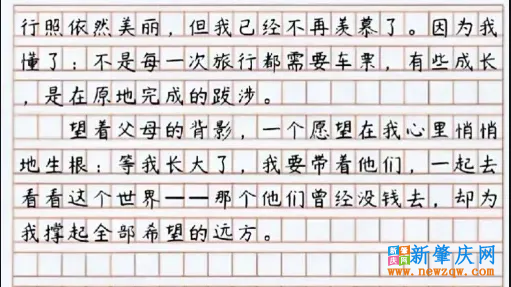 行照依然美丽，但我已经不再羡慕了。因为我
懂了：不是每一次旅行都需要车票，有些成长
，是在原地完成的跋涉。
望着父母的背影，一个愿望在我心里悄悄
地生根：等我长大了，我要带着他们，一起去
看看这个世界——那个他们曾经没钱去，却为
我撑起全部希望的远方。
新肇庆网
www.newzqw.com